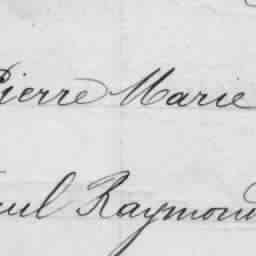 Pierre Marie
Paul Raymond